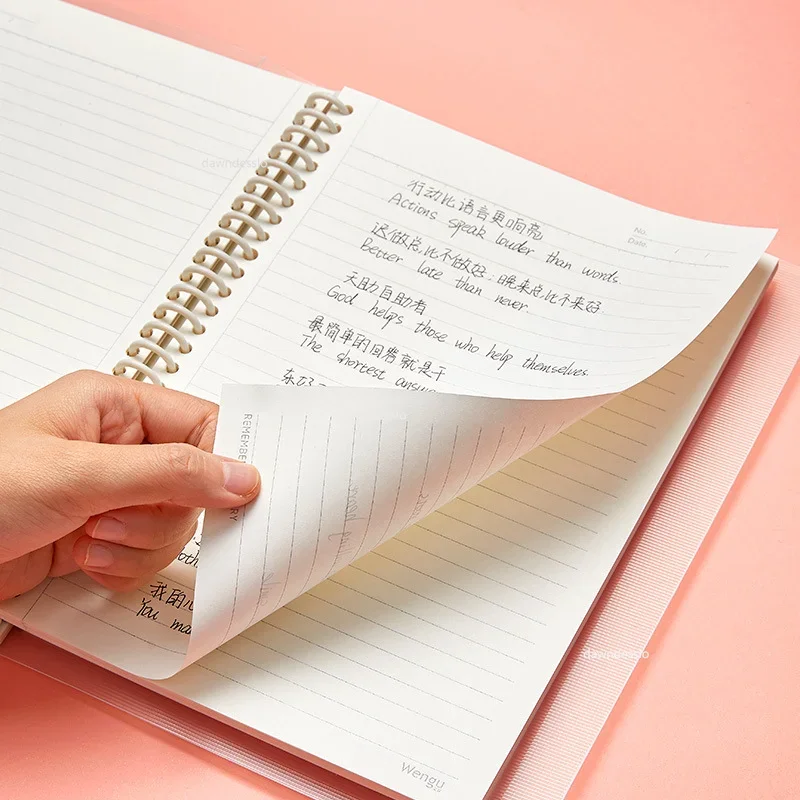 行动比语言更响亮
Actions speak louder than words.
迟做总比不做好；晚来总比不来好
Better late than never.
天助自助者
God helps those who help themselves.
最简单的回答就是干
The shortest answe
东好
REMEMBE
RY
oth
我的心
You ma
No.
Date.
Wengu
dawndesslo
dawndesslo